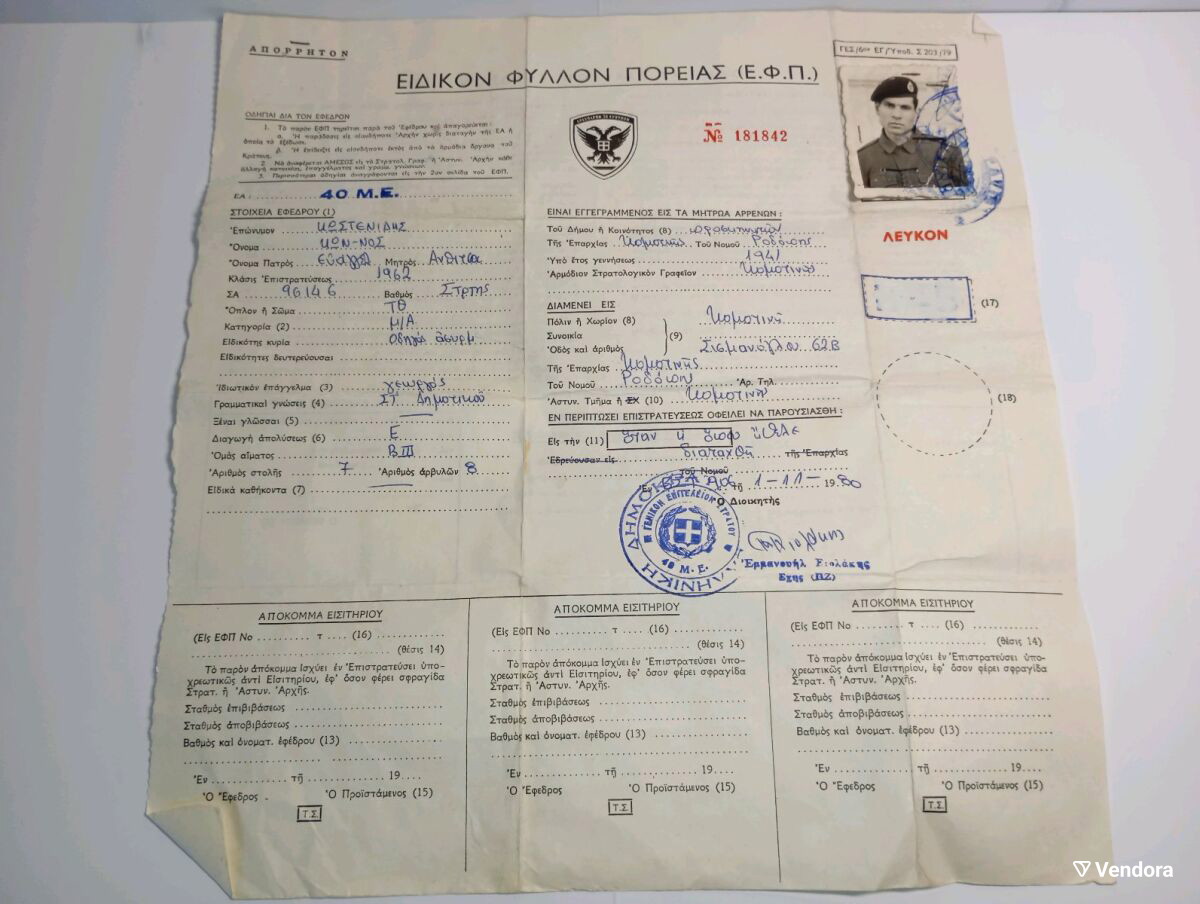 ΑΠΟΡΡΗΤΟΝ
ΓΕΣ/6ον ΕΓ/Υποδ. Σ 203/79
ΕΙΔΙΚΟΝ ΦΥΛΛΟΝ ΠΟΡΕΙΑΣ (Ε.Φ.Π.)
ΟΔΗΓΙΑΙ ΔΙΑ ΤΟΝ ΕΦΕΔΡΟΝ
1. Τὸ παρὸν ΕΦΠ τηρεῖται παρὰ τοῦ Ἐφέδρου καὶ ἀπαγορεύεται:
α. Ἡ παράδοσις εἰς οἱανδήποτε Ἀρχὴν χωρὶς διαταγὴν τῆς ΕΑ ἡ
ὁποία τὸ ἐξέδωσε.
β. Ἡ ἐπίδειξις εἰς οἱονδήποτε ἐκτὸς ἀπὸ τὰ ἁρμόδια ὄργανα τοῦ
Κράτους.
2. Νὰ ἀναφέρεται ΑΜΕΣΩΣ εἰς τὸ Στρατολ. Γραφ. ἢ Ἀστυν. Ἀρχὴν κάθε
ἀλλαγὴ κατοικίας, ἐπαγγέλματος καὶ γραμμ. γνώσεων.
3. Περισσότεραι ὁδηγίαι ἀναγράφονται εἰς τὴν 2αν σελίδα τοῦ ΕΦΠ.
№ 181842
ΕΑ : 40 Μ.Ε.
ΣΤΟΙΧΕΙΑ ΕΦΕΔΡΟΥ (1)
Ἐπώνυμον ΚΩΣΤΕΝΙΔΗΣ
Ὄνομα ΚΩΝ-ΝΟΣ
Ὄνομα Πατρὸς Εὐάγγελ Μητρὸς Ανθίτσα
Κλάσις Ἐπιστρατεύσεως 1962
ΣΑ 96146 Βαθμὸς Στρτης
Ὅπλον ἢ Σῶμα ΤΘ
Κατηγορία (2) Μ/Α
Εἰδικότης κυρία Οδηγὸς ἀσυρμ.
Εἰδικότητες δευτερεύουσαι
Ἰδιωτικὸν ἐπάγγελμα (3) γεωργὸς
Γραμματικαὶ γνώσεις (4) ΣΤ' Δημοτικοῦ
Ξέναι γλῶσσαι (5)
Διαγωγὴ ἀπολύσεως (6) Ε
Ὁμὰς αἵματος Β III
Ἀριθμὸς στολῆς 7 Ἀριθμὸς ἀρβυλῶν 8
Εἰδικὰ καθήκοντα (7)
ΕΙΝΑΙ ΕΓΓΕΓΡΑΜΜΕΝΟΣ ΕΙΣ ΤΑ ΜΗΤΡΩΑ ΑΡΡΕΝΩΝ :
Τοῦ Δήμου ἢ Κοινότητος (8)
Τῆς Ἐπαρχίας Κομοτινῆς Τοῦ Νομοῦ Ροδόπης
Ὑπὸ ἔτος γεννήσεως 1941
Ἁρμόδιον Στρατολογικὸν Γραφεῖον Κομοτινῆς
ΔΙΑΜΕΝΕΙ ΕΙΣ
Πόλιν ἢ Χωρίον (8) Κομοτινὴ
Συνοικία (9)
Ὁδὸς καὶ ἀριθμὸς Σισμανόγλου 62Β
Τῆς Ἐπαρχίας Κομοτινῆς
Τοῦ Νομοῦ Ροδόπης Ἀρ. Τηλ.
Ἀστυν. Τμῆμα ἢ ΣΧ (10) Κομοτινῆς
ΕΝ ΠΕΡΙΠΤΩΣΕΙ ΕΠΙΣΤΡΑΤΕΥΣΕΩΣ ΟΦΕΙΛΕΙ ΝΑ ΠΑΡΟΥΣΙΑΣΘΗ :
Εἰς τὴν (11) ὅταν κ ὅπου
Ἑδρεύουσαν εἰς διαταχθῆ τῆς Ἐπαρχίας
τοῦ Νομοῦ
Ἐν τῇ 1-11- 1980
Ὁ Διοικητὴς
ΕΛΛΗΝΙΚΗ ΔΗΜΟΚΡΑΤΙΑ
ΓΕΝΙΚΟΝ ΕΠΙΤΕΛΕΙΟΝ ΣΤΡΑΤΟΥ
40 Μ.Ε.
Ἐμμανουὴλ
Σχης (ΠΖ)
ΛΕΥΚΟΝ
(17)
(18)
ΑΠΟΚΟΜΜΑ ΕΙΣΙΤΗΡΙΟΥ
(Εἰς ΕΦΠ Νο .......... τ .... (16)
(θέσις 14)
Τὸ παρὸν ἀπόκομμα ἰσχύει ἐν Ἐπιστρατεύσει ὑπο-
χρεωτικῶς ἀντὶ Εἰσιτηρίου, ἐφ' ὅσον φέρει σφραγίδα
Στρατ. ἢ Ἀστυν. Ἀρχῆς.
Σταθμὸς ἐπιβιβάσεως
Σταθμὸς ἀποβιβάσεως
Βαθμὸς καὶ ὀνοματ. ἐφέδρου (13)
Ἐν ............ τῇ ............ 19....
Ὁ Ἔφεδρος Ὁ Προϊστάμενος (15)
Τ.Σ.
ΑΠΟΚΟΜΜΑ ΕΙΣΙΤΗΡΙΟΥ
(Εἰς ΕΦΠ Νο .......... τ .... (16)
(θέσις 14)
Τὸ παρὸν ἀπόκομμα ἰσχύει ἐν Ἐπιστρατεύσει ὑπο-
χρεωτικῶς ἀντὶ Εἰσιτηρίου, ἐφ' ὅσον φέρει σφραγίδα
Στρατ. ἢ Ἀστυν. Ἀρχῆς.
Σταθμὸς ἐπιβιβάσεως
Σταθμὸς ἀποβιβάσεως
Βαθμὸς καὶ ὀνοματ. ἐφέδρου (13)
Ἐν ............ τῇ ............ 19....
Ὁ Ἔφεδρος Ὁ Προϊστάμενος (15)
Τ.Σ.
ΑΠΟΚΟΜΜΑ ΕΙΣΙΤΗΡΙΟΥ
(Εἰς ΕΦΠ Νο .......... τ .... (16)
(θέσις 14)
Τὸ παρὸν ἀπόκομμα ἰσχύει ἐν Ἐπιστρατεύσει ὑπο-
χρεωτικῶς ἀντὶ Εἰσιτηρίου, ἐφ' ὅσον φέρει σφραγίδα
Στρατ. ἢ Ἀστυν. Ἀρχῆς.
Σταθμὸς ἐπιβιβάσεως
Σταθμὸς ἀποβιβάσεως
Βαθμὸς καὶ ὀνοματ. ἐφέδρου (13)
Ἐν ............ τῇ ............ 19....
Ὁ Ἔφεδρος Ὁ Προϊστάμενος (15)
Τ.Σ.
Vendora